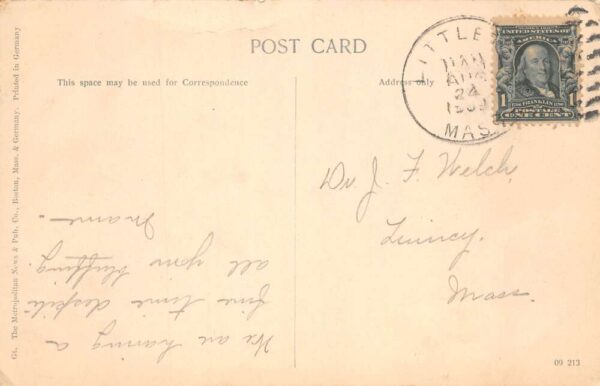 POST CARD
This space may be used for Correspondence
Address only
G1. The Metropolitan News & Pub. Co., Boston, Mass. & Germany. Printed in Germany
LITTLE
24
MASS
UNITED STATES OF AMERICA
1 FRANKLIN 1
POSTAGE
ONE CENT
Dr. J. F. Welch,
Quincy,
Mass.
We are having a
fine time despite
all your bluffing.
Mame -
09 213